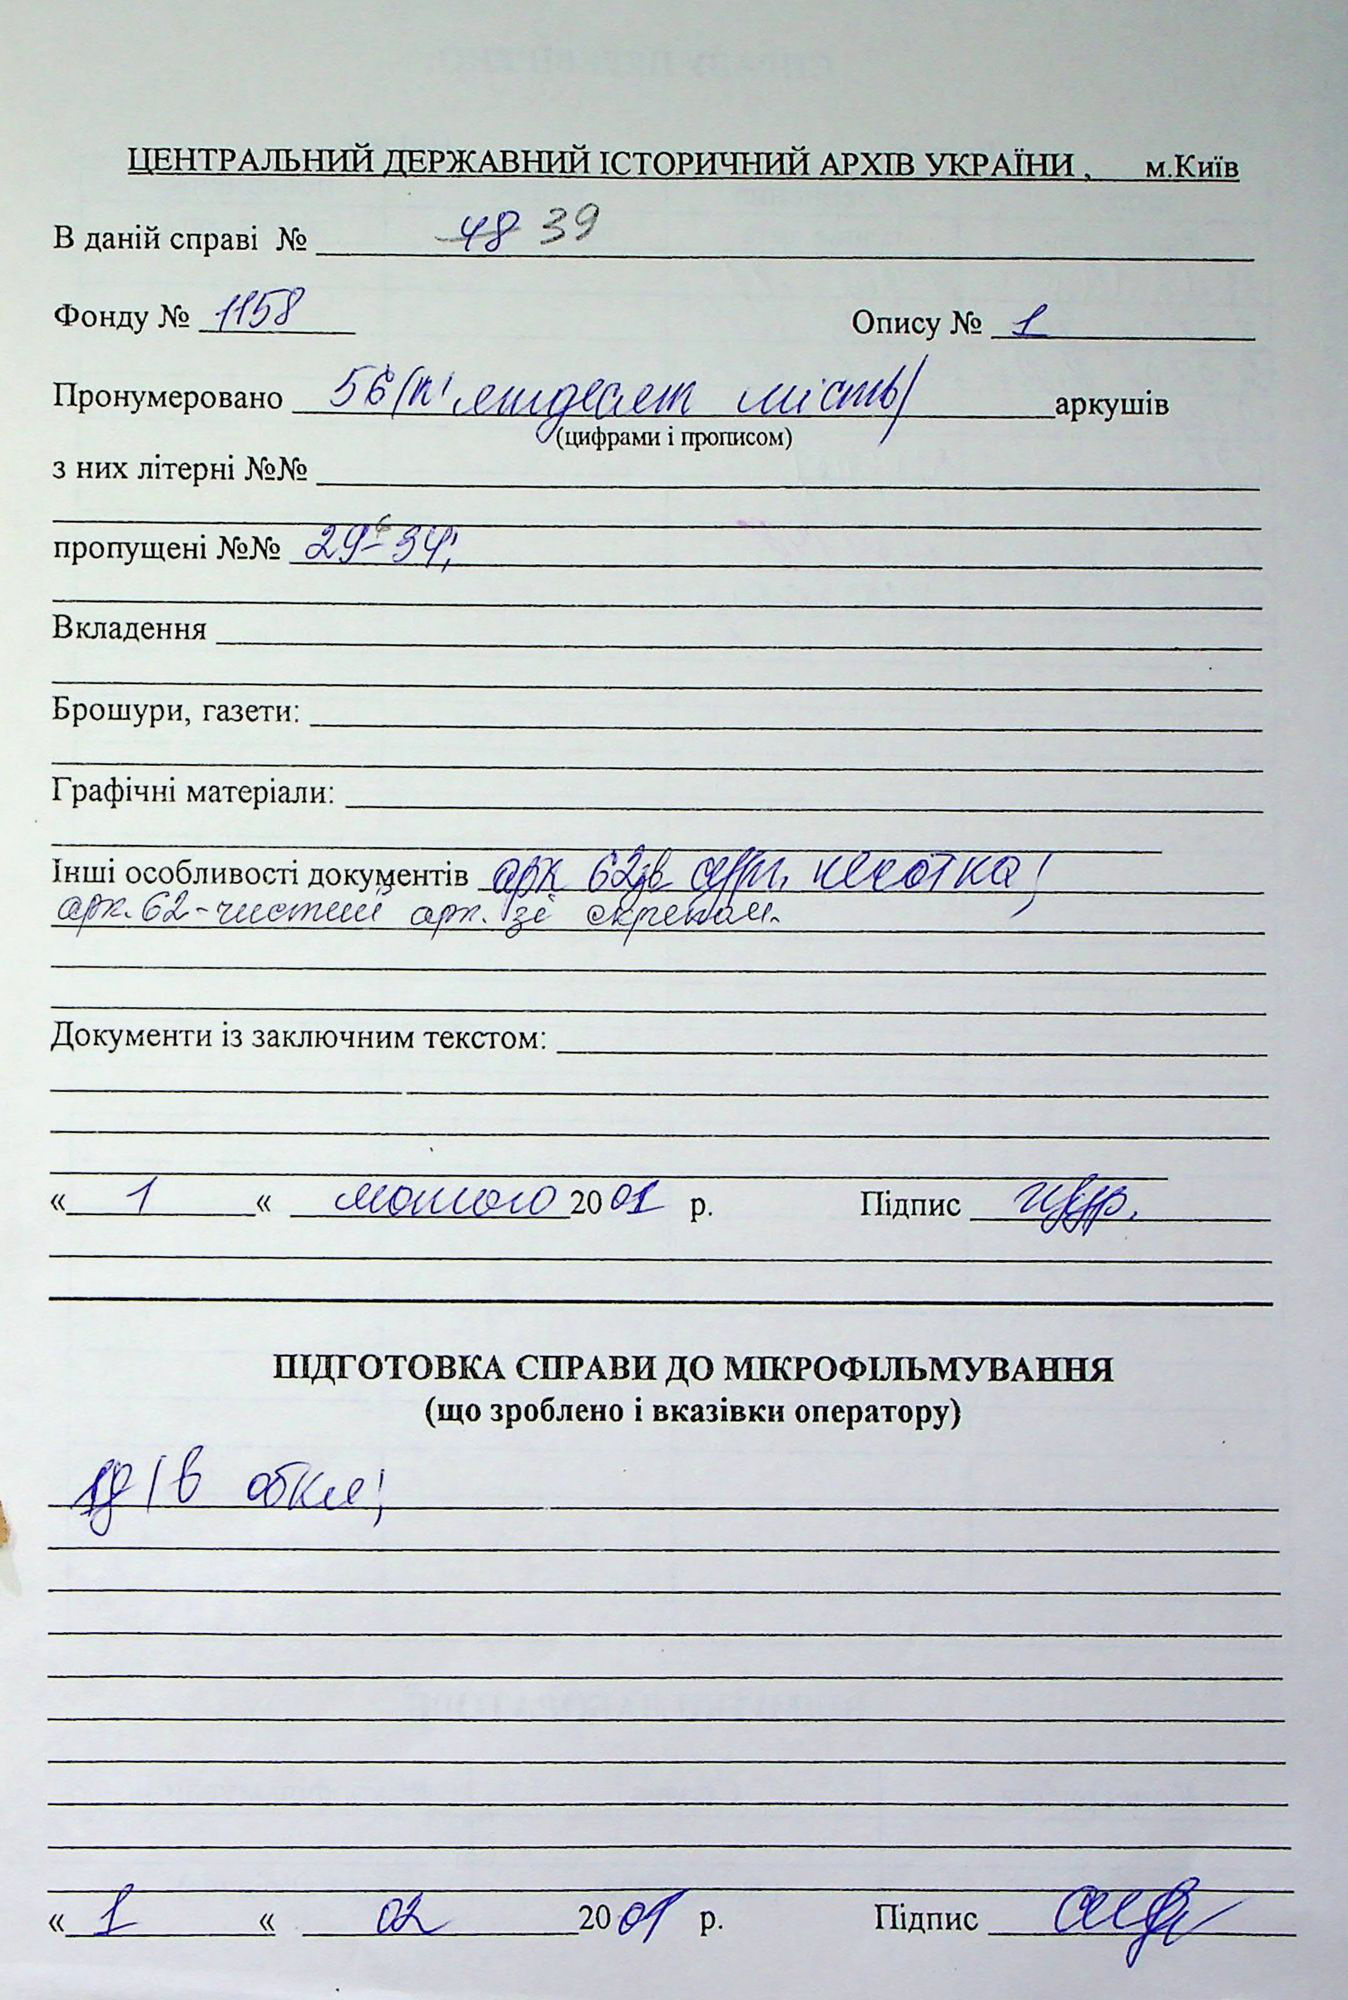 ЦЕНТРАЛЬНИЙ ДЕРЖАВНИЙ ІСТОРИЧНИЙ АРХІВ УКРАЇНИ , м.Київ
В даній справі № 48 39
Фонду № 1158 Опису № 1
Пронумеровано 56/п'ятдесят шість/ аркушів
(цифрами і прописом)
з них літерні №№
пропущені №№ 29-34;
Вкладення
Брошури, газети:
Графічні матеріали:
Інші особливості документів арк 62
арк. 62-чистий арк. зі скрепам.
Документи із заключним текстом:
« 1 « лютого 2001 р. Підпис
ПІДГОТОВКА СПРАВИ ДО МІКРОФІЛЬМУВАННЯ
(що зроблено і вказівки оператору)
« 1 « 02 2001 р. Підпис